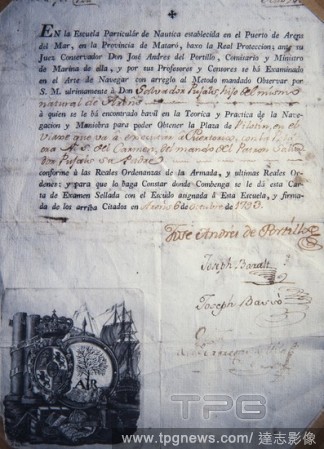 EN la Escuela Particular de Nautica establecida en el Puerto de Areṅs
del Mar, en la Provincia de Mataró, baxo la Real Proteccion; ante su
Juez Conservador Don José Andres del Portillo, Comisario y Ministro
de Marina de ella, y por sus Profesores y Censores se há Examinado
en el Arte de Navegar con arreglo al Metodo mandado Observar por
S. M. ultimamente á Don Salvador Pujals, hijo del mismo
natural de
á quien se le há encontrado havil en la Teorica y Practica de la Nave-
gacion y Maniobra para poder Obtener la Plaza de Piloto, en el
del Carmen, del mando del Patron
Pujals su Padre
conforme á las Reales Ordenanzas de la Armada, y ultimas Reales Or-
denes; y para que lo haga Constar donde Combenga se le dá esta Carta
de Examen Sellada con el Escudo asignado á Esta Escuela, y firma-
da de los arriba Citados en Arens 6 de Octubre de
Jose Andres de Portillo
Joseph Baralt
Joseph Barró
TPG
www.tpgnews.com/達志影像